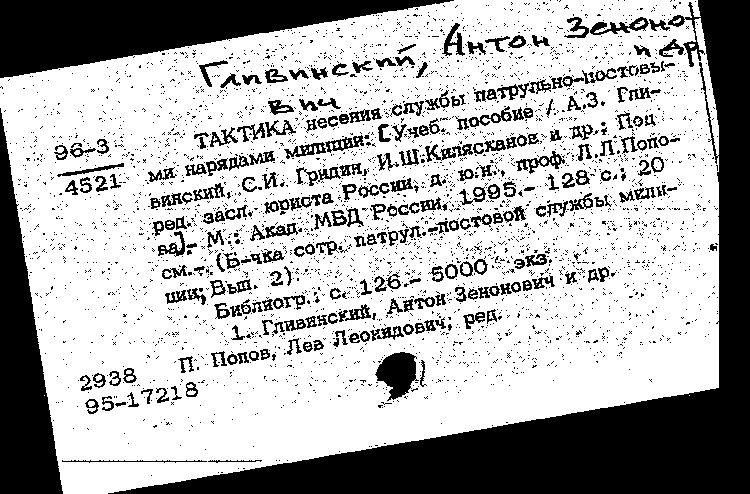 Гливинский, Антон Зеноно-
вич и др.
96-3
4521
ТАКТИКА несения службы патрульно-постовы-
ми нарядами милиции: [Учеб. пособие / А.З. Гли-
винский, С.И. Гридин, И.Ш.Килясханов и др.; Под
ред. засл. юриста России, д. ю.н., проф. Л.Л.Попо-
ва].- М.: Акад. МВД России, 1995.- 128 с.; 20
см.-. (Б-чка сотр. патрул.-постовой службы мили-
ции; Вып. 2).
Библиогр.: с. 126.- 5000 экз.
1. Гливинский, Антон Зенонович и др.
П. Попов, Лев Леонидович, ред.
2938
95-17218